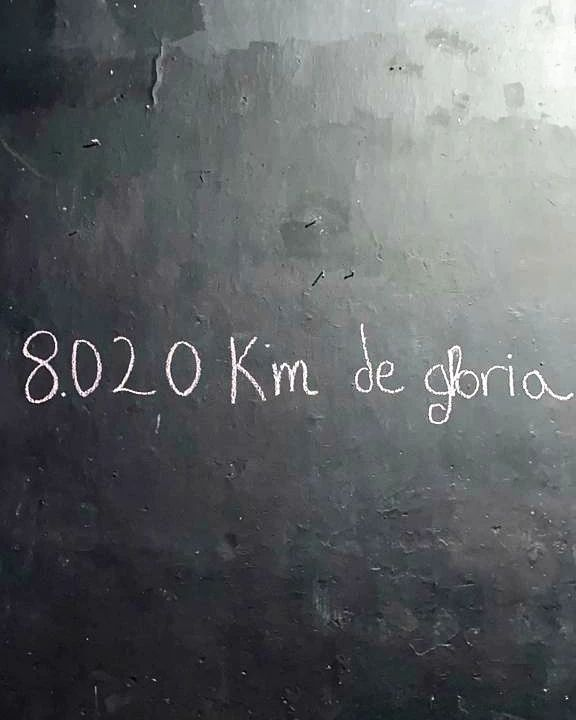 8.020 Km de gloria